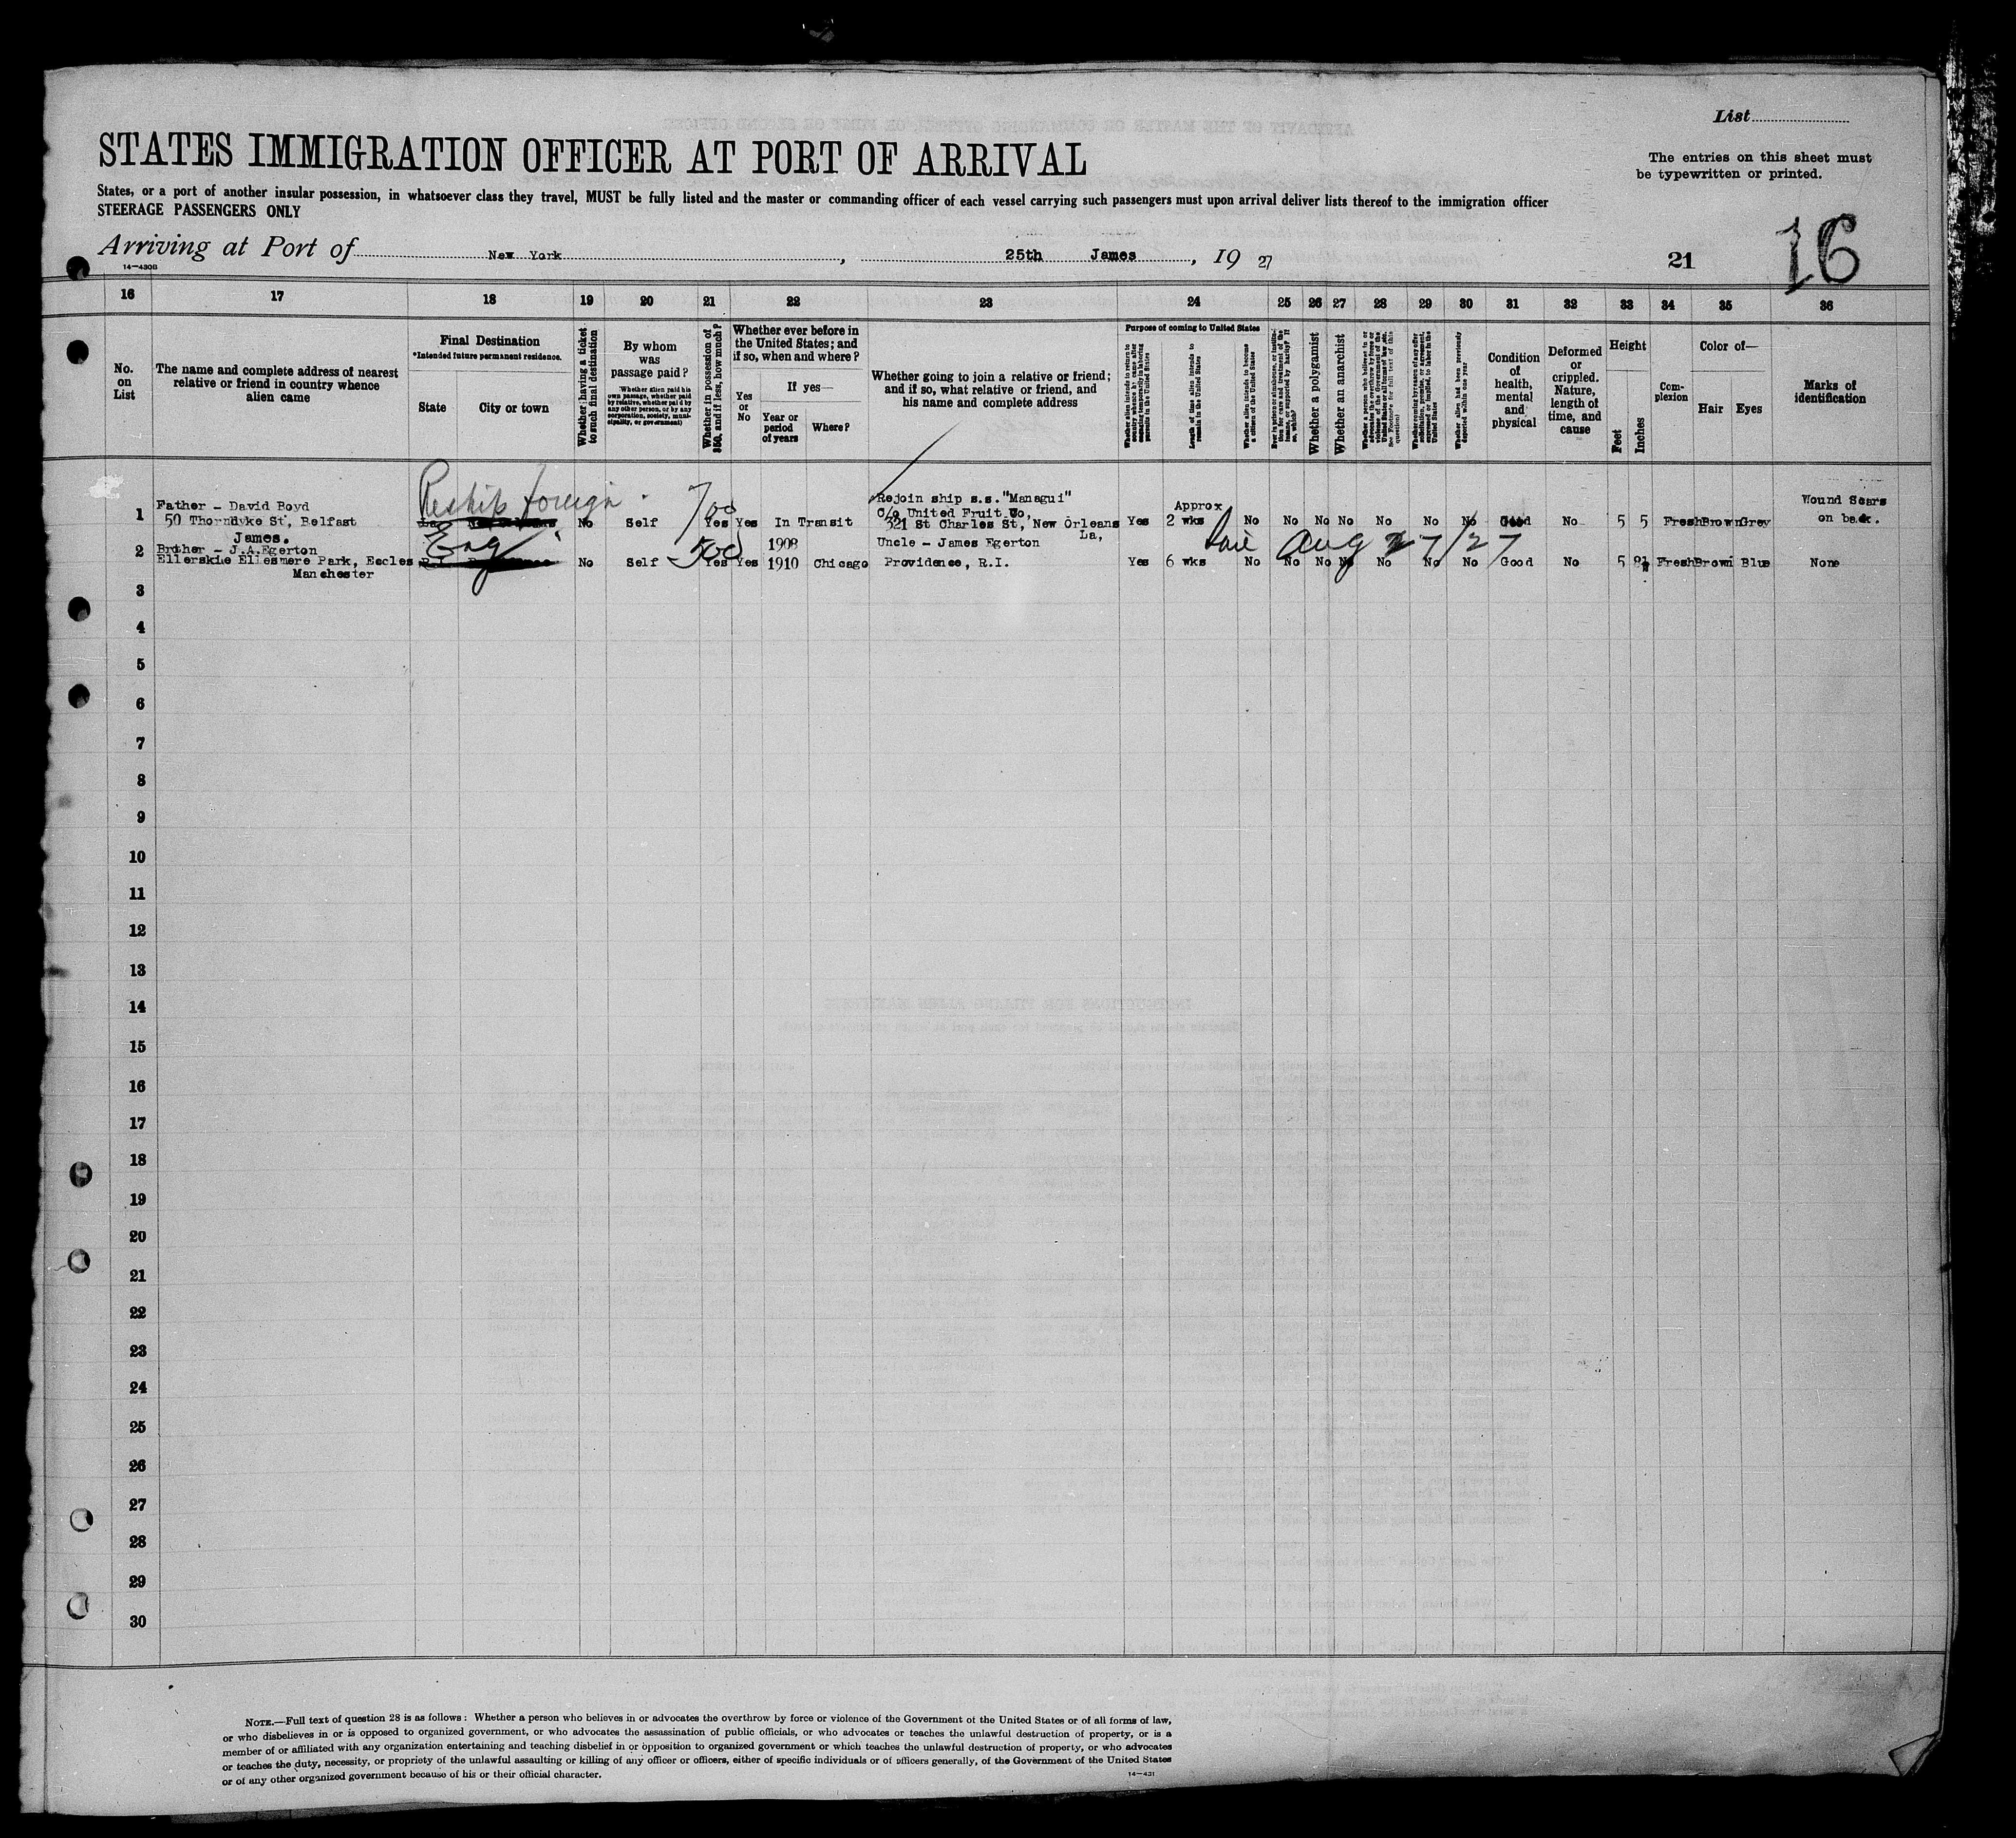 List
STATES IMMIGRATION OFFICER AT PORT OF ARRIVAL
The entries on this sheet must
be typewritten or printed.
States, or a port of another insular possession, in whatsoever class they travel, MUST be fully listed and the master or commanding officer of each vessel carrying such passengers must upon arrival deliver lists thereof to the immigration officer
STEERAGE PASSENGERS ONLY
16
Arriving at Port of New York, 25th James, 19 27
21
14—430B
16 17 18 19 20 21 22 23 24 25 26 27 28 29 30 31 32 33 34 35 36
No.
on
List
The name and complete address of nearest
relative or friend in country whence
alien came
Final Destination
*Intended future permanent residence.
State
City or town
Whether having a ticket
to such final destination
By whom
was
passage paid?
Whether alien paid his
own passage, whether paid
by relative, whether paid by
any other person, or by any
corporation, society, muni-
cipality, or government)
Whether in possession of
$50, and if less, how much?
Whether ever before in
the United States; and
if so, when and where?
Yes
or
No
If yes—
Year or
period
of years
Where?
Whether going to join a relative or friend;
and if so, what relative or friend, and
his name and complete address
Purpose of coming to United States
Length of time alien intends to
remain in the United States
Whether alien intends to become
a citizen of the United States
Whether a polygamist
Whether an anarchist
Whether alien has been previously
deported within one year
Condition
of
health,
mental
and
physical
Deformed
or
crippled.
Nature,
length of
time, and
cause
Height
Feet
Inches
Com-
plexion
Color of—
Hair
Eyes
Marks of
identification
Reship foreign
700
1 Father - David Boyd
50 Thorndyke St, Belfast
La. No Self Yes Yes In Transit
Rejoin ship s.s. "Managui"
C/o United Fruit Co,
321 St Charles St, New Orleans
La,
Approx
Yes 2 wks No No No No No No No Good No 5 5 Fresh Brown Grey
Wound Scars
on back.
James.
2 Brother - J.A.Egerton
Ellerskie Ellesmere Park, Eccles
Manchester
Eng
R.I. No Self 500 Yes Yes
1908
1910 Chicago
Uncle - James Egerton
Providence, R.I.
Aug 27/27
Yes 6 wks No No No No No No No Good No 5 8½ Fresh Brown Blue None
3
4
5
6
7
8
9
10
11
12
13
14
15
16
17
18
19
20
21
22
23
24
25
26
27
28
29
30
NOTE.—Full text of question 28 is as follows: Whether a person who believes in or advocates the overthrow by force or violence of the Government of the United States or of all forms of law,
or who disbelieves in or is opposed to organized government, or who advocates the assassination of public officials, or who advocates or teaches the unlawful destruction of property, or is a
member of or affiliated with any organization entertaining and teaching disbelief in or opposition to organized government or which teaches the unlawful destruction of property, or who advocates
or teaches the duty, necessity, or propriety of the unlawful assaulting or killing of any officer or officers, either of specific individuals or of officers generally, of the Government of the United States
or of any other organized government because of his or their official character.
14—431